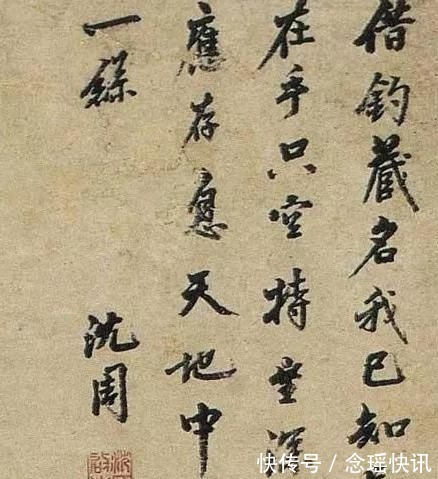 借釣藏名我已知
在手只空持星
應存天地中
一
沈周
快传号/念瑶快讯